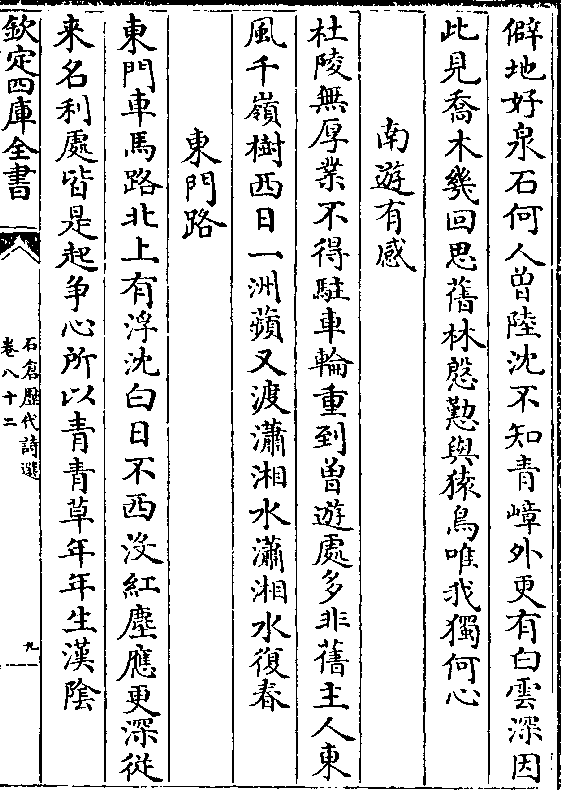 僻地好泉石何人曽陸沈不知青嶂外更有白雲深因
此見喬木幾回思舊林慇懃與猿鳥唯我獨何心
南遊有感
杜陵無厚業不得駐車輪重到曽遊處多非舊主人東
風千嶺樹西日一洲蘋又渡瀟湘水瀟湘水復春
東門路
東門車馬路北上有浮沈白日不西没紅塵應更深從
来名利處皆是起争心所以青青草年年生漢陰
欽定四庫全書
石倉歴代詩選
卷八十二
九